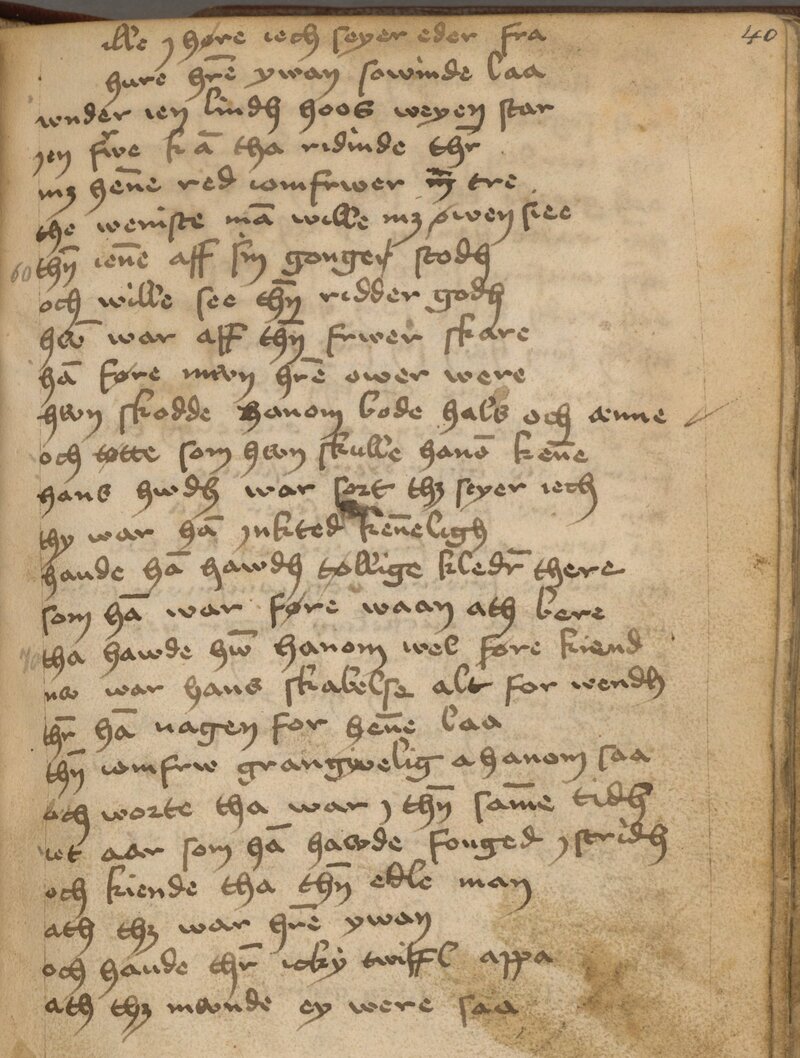 40
ille j høre iech seyer eder fra
hure hr̄e ywan sowinde laa
wnder ien lindh hoos weyen star
jen frwe kā tha ridinde thr̄
mꝫ hen̄e red iomfrwer tre
the weriste mā wille mꝫ øwen siee
60 thn̄ ien̄e aff sin gonger stodh
och wille see thn̄ ridder godh
hw̄ war aff thn̄ frwer skare
hā føre mwn hr̄e ower were
hwn skodde hanom bode hals och ænne
och totte som hwn skulle hanō ken̄e
hans hwdh war sort thꝫ seyer iech
thy war hā jnkted ken̄eligh
haude hā hawdh tøllige kledr̄ there
som hā war føre waan ath bere
70 tha hawde hw̄ hanom wel føre kiend
nw war hans skabelse alt for wendh
thr̄ hā nagen for hen̄e laa
thn̄ iomfrw grangwelig a hanom saa
och worte tha war j thn̄ sam̄e tidh
it aar som hā hawde fonged j stridh
och kiende tha thn̄ edle man
ath thꝫ war hr̄e ywan
och haude thr̄ icky twiffl appa
ath thꝫ mwnde ey were saa